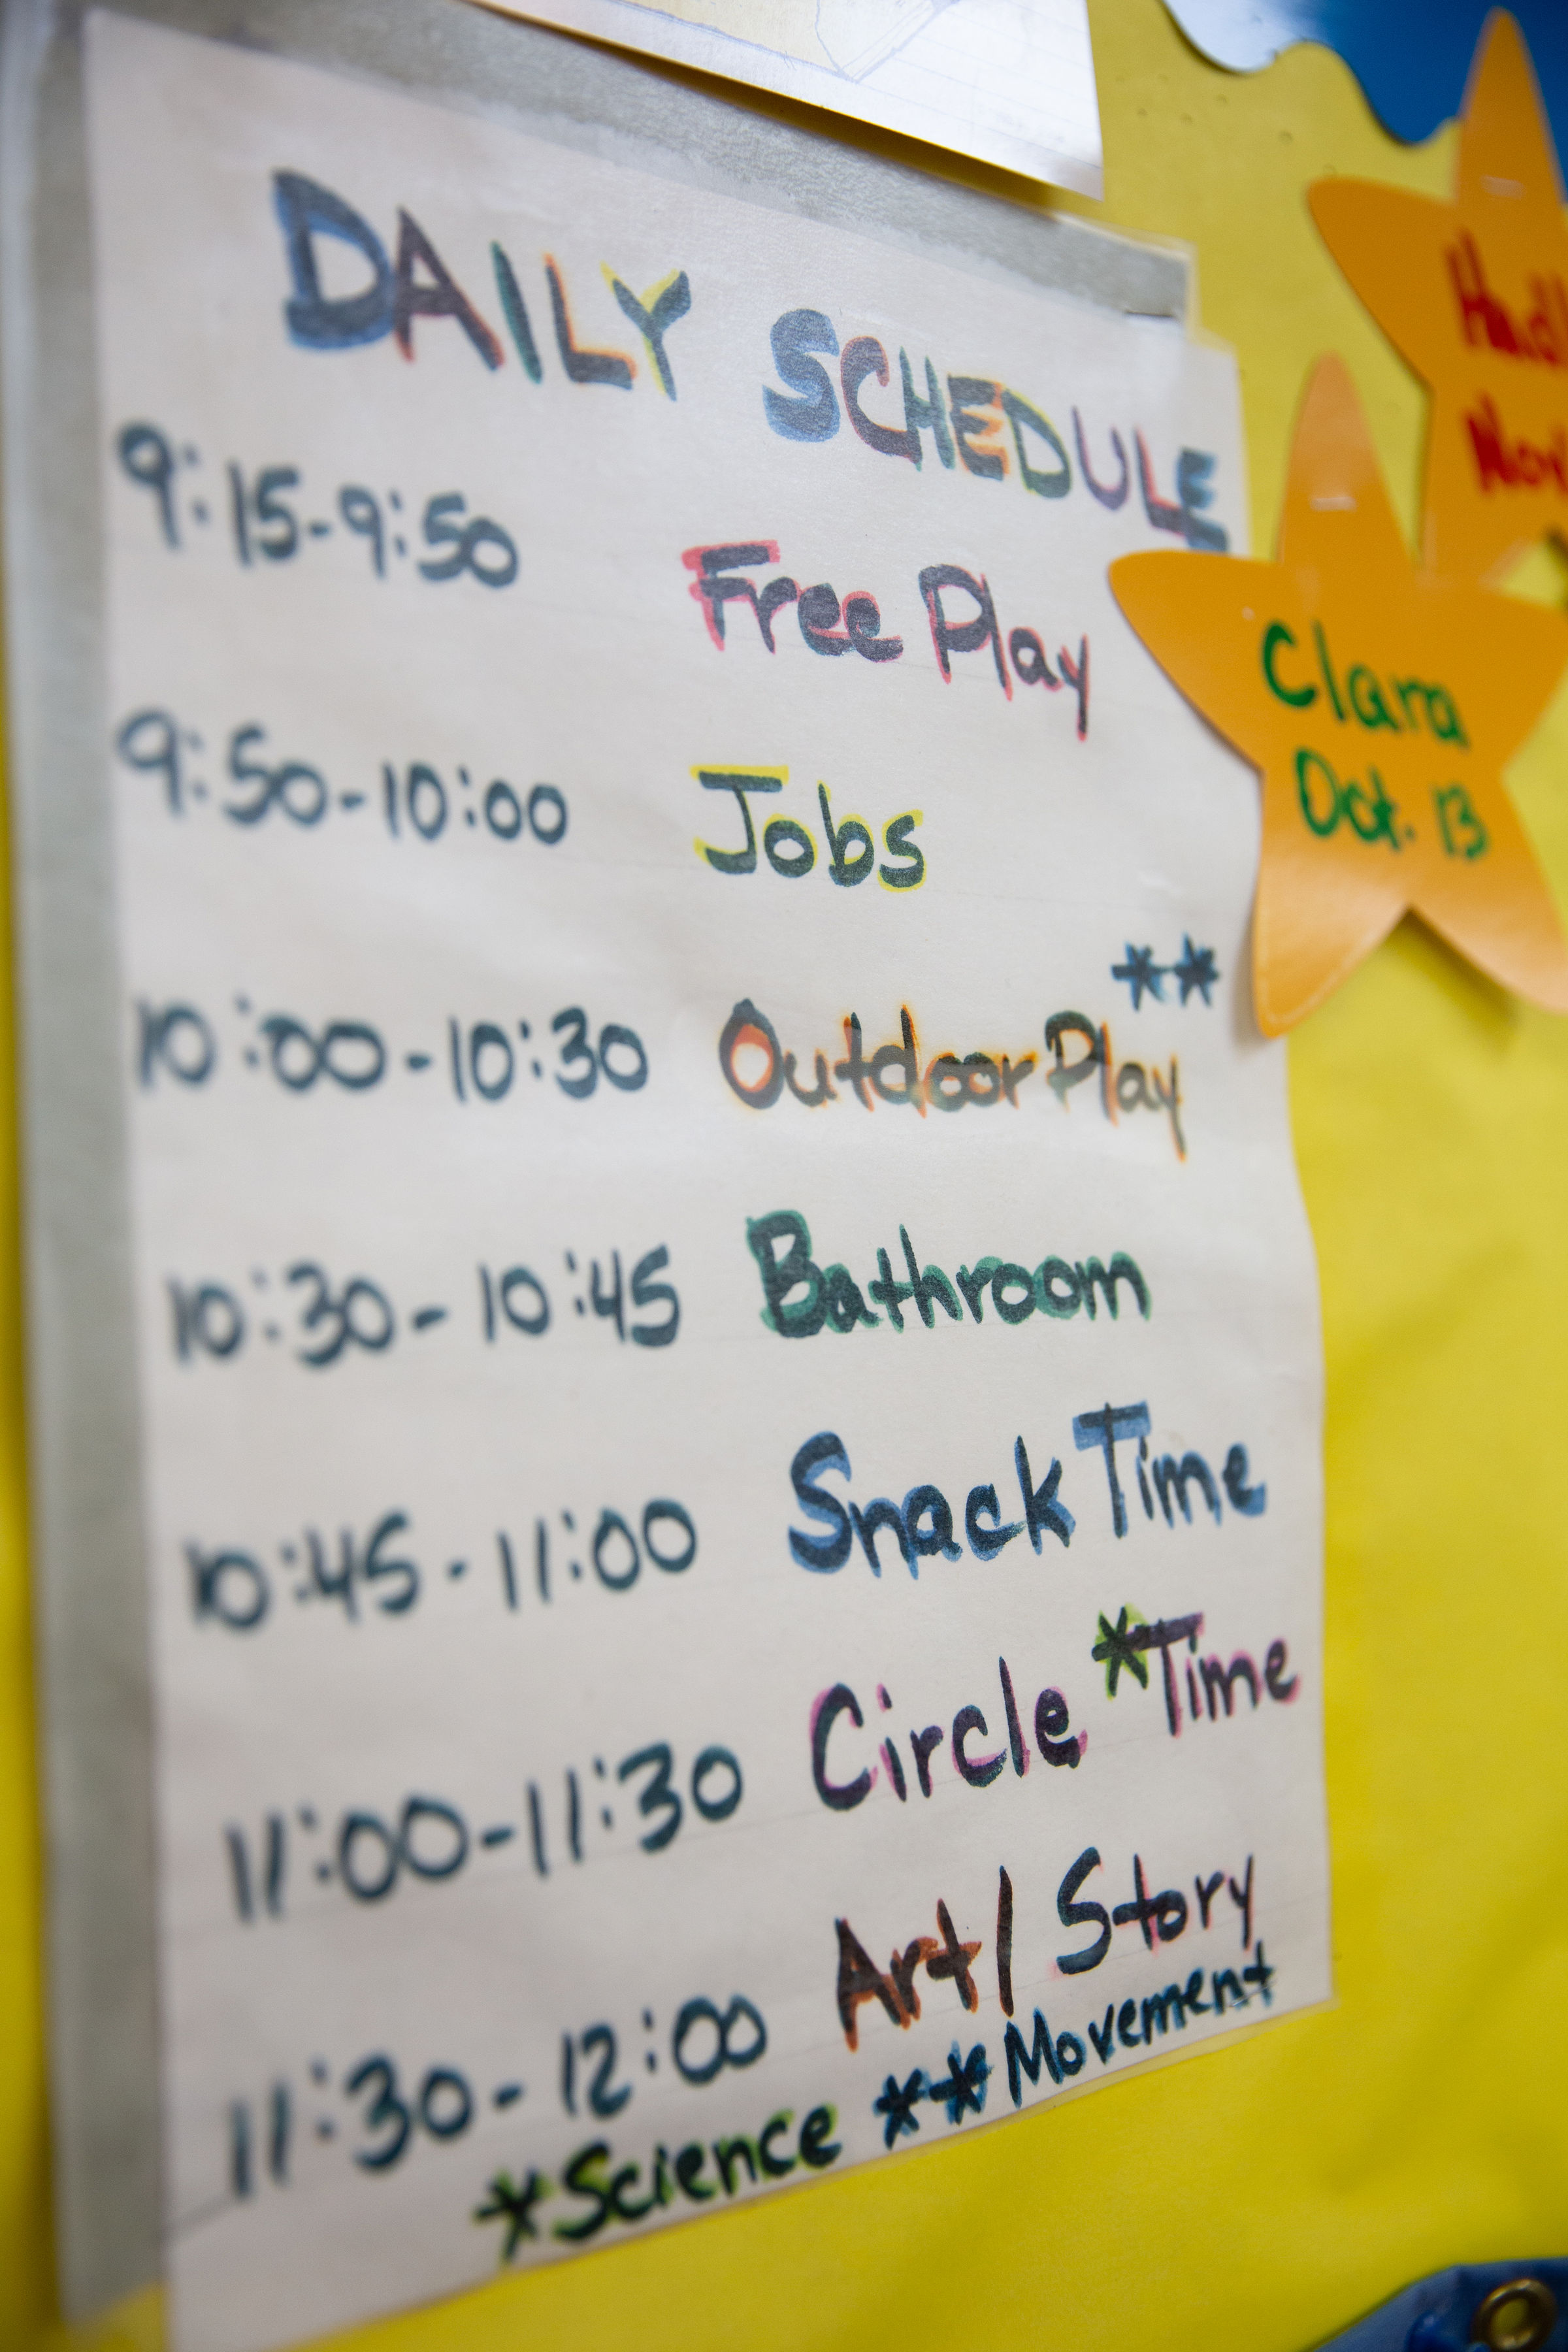 DAILY SCHEDULE
9:15-9:50 Free Play
9:50-10:00 Jobs
10:00-10:30 Outdoor Play **
10:30-10:45 Bathroom
10:45-11:00 Snack Time
11:00-11:30 Circle *Time
11:30-12:00 Art/Story
*Science **Movement
Clara
Oct. 13